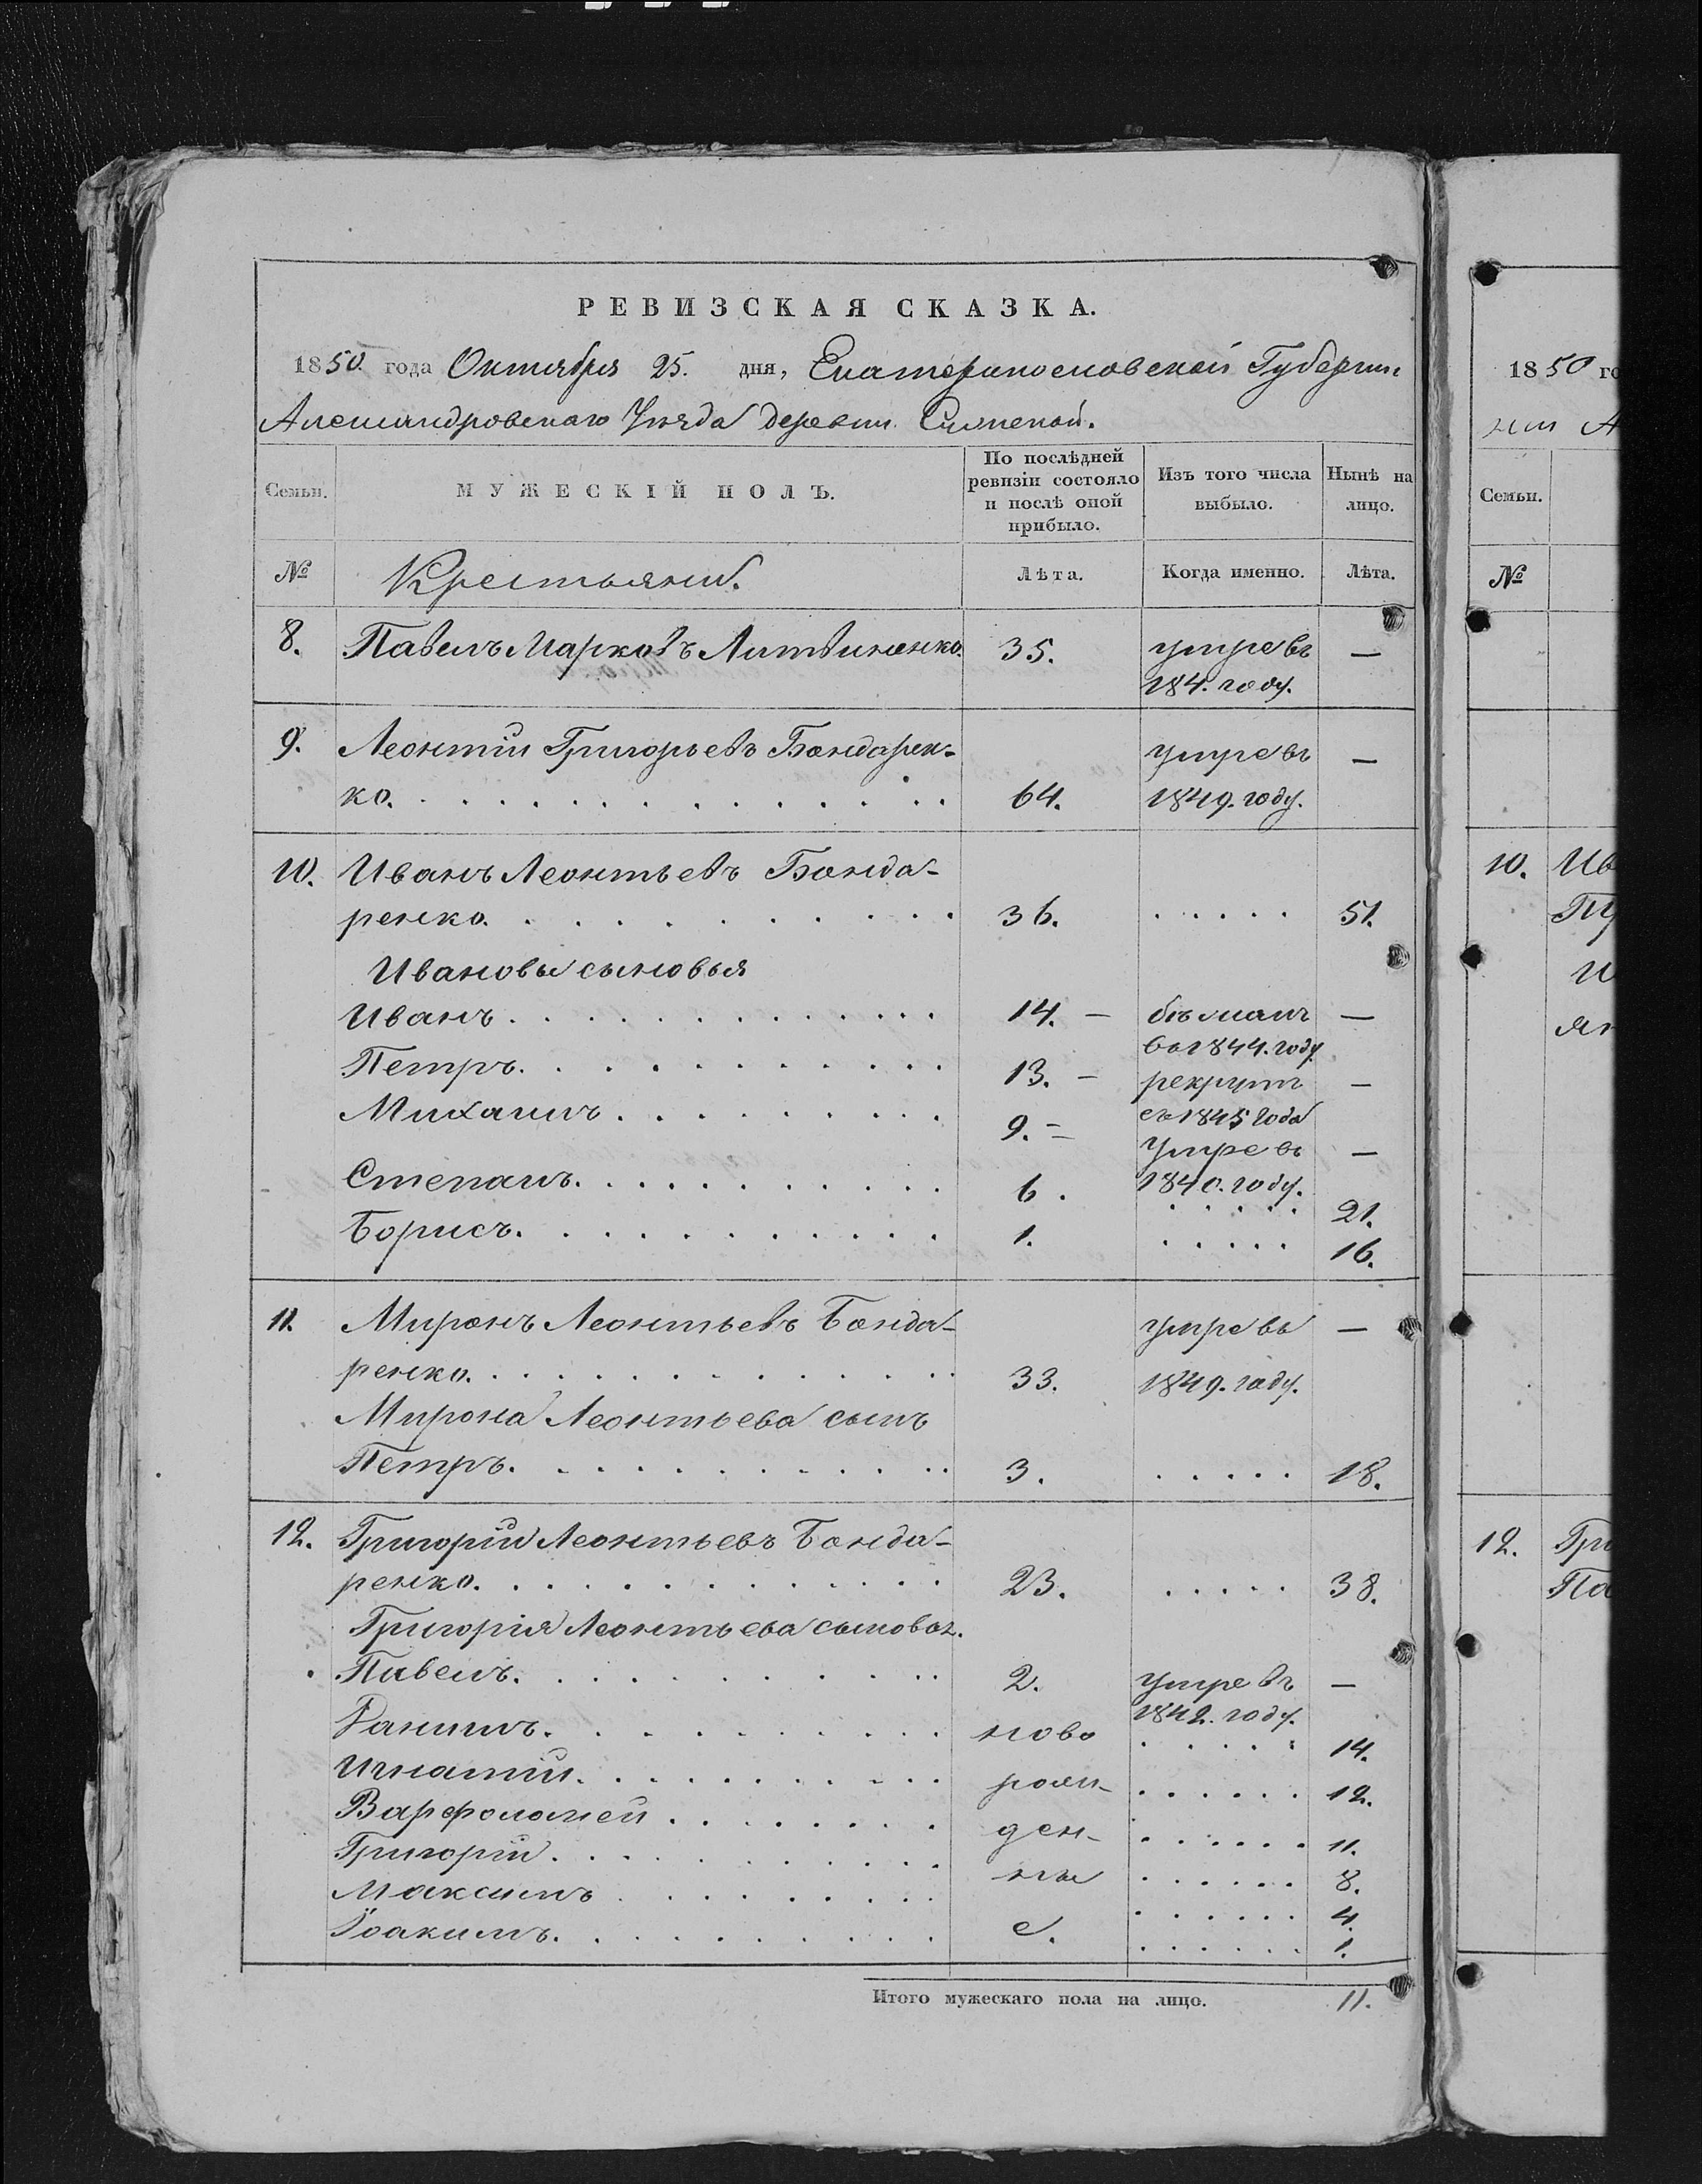 РЕВИЗСКАЯ СКАЗКА.
1850. года Октября 25. дня, Екатеринославской Губернии
Александровскаго Уѣзда деревни
Семьи.
МУЖЕСКІЙ ПОЛЪ.
По послѣдней ревизіи состояло и послѣ оной прибыло.
Изъ того числа выбыло.
Нынѣ на лицо.
№ Крестьяни. Лѣта. Когда именно. Лѣта.
8. Павелъ Марковъ Литвиненко. 35. умре въ —
184. году.
9. Леонтій Григорьевъ Бондарен- умре въ —
ко. 64. 1849. году.
10. Иванъ Леонтьевъ Бонда-
ренко. 36. 51.
Ивановы сыновья
Иванъ. 14. — бѣжалъ —
въ 1844. году.
Петръ. 13. — рекрутъ —
съ 1845 года
Михаилъ. 9. — умре въ —
1840. году.
Степанъ. 6. 21.
Борисъ. 1. 16.
11. Миронъ Леонтьевъ Бонда- умре въ —
ренко. 33. 1849. году.
Мирона Леонтьева сынъ
Петръ. 3. 18.
12. Григорій Леонтьевъ Бонда-
ренко. 23. 38.
Григорія Леонтьева сыновья.
Павелъ. 2. умре въ —
1842. году.
Данилъ. ново 14.
Игнатій. рож- 12.
Варфоломей. ден- 11.
Григорій. ны 8.
Максимъ. 4.
Іоакимъ. е. 1.
Итого мужескаго пола на лицо. 11.
1850 го
нии А
Семьи.
№
10. Ив
12. Гри